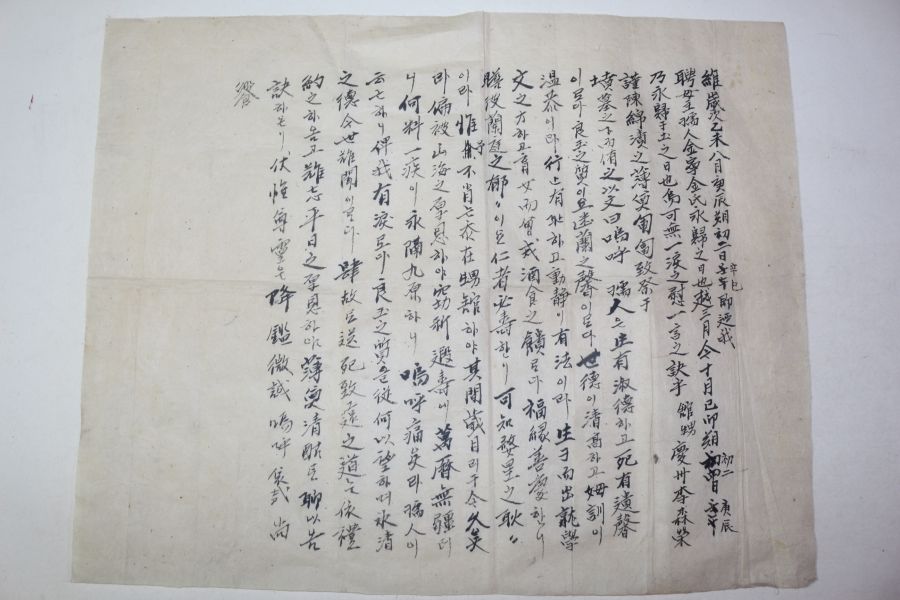 維歲次乙未八月庚辰朔初二日辛巳即廼我
聘母主孺人金寧金氏永歸之日也越三月今十月己卯朔初二日庚辰
乃永歸于土之日也焉可無一淚之慰一言之訣乎 館甥慶州李森榮
謹陳綿漬之薄奠匍匐致祭于
墳墓之下而侑之以文曰嗚呼 孺人은 生有淑德하고 死有遺馨
이로다 良玉之質이요 蘭之馨이로다 世德이 淸高하고 姆訓이
溫恭이라 行止有 하고 動靜이 有法이라 生子而出就學
文之方하고 育女而 我酒食之饋로다 福緣善慶하니
彼蘭庭之郁〻이요 仁者必壽한이 可知婺星之耿〻
이라 惟予不肖 忝在甥舘하야 其間歲月이 于今久矣
라 偏被山海之厚恩하야 窃祈遐壽에 萬曆無疆터
니 何料一疾이 永隔九原하니 嗚呼痛矣라 孺人이
云亡하니 俾我有淚로다 良玉之質을 從何以望하며 氷淸
之德 今世難聞이로다 肆故로 送死致遠之道는 依禮
約之하 고 難忘平日之厚恩하야 薄奠淸酌로 聊以告
訣하오니 伏惟尊靈는 降鑑微誠 嗚呼哀哉 尙
饗